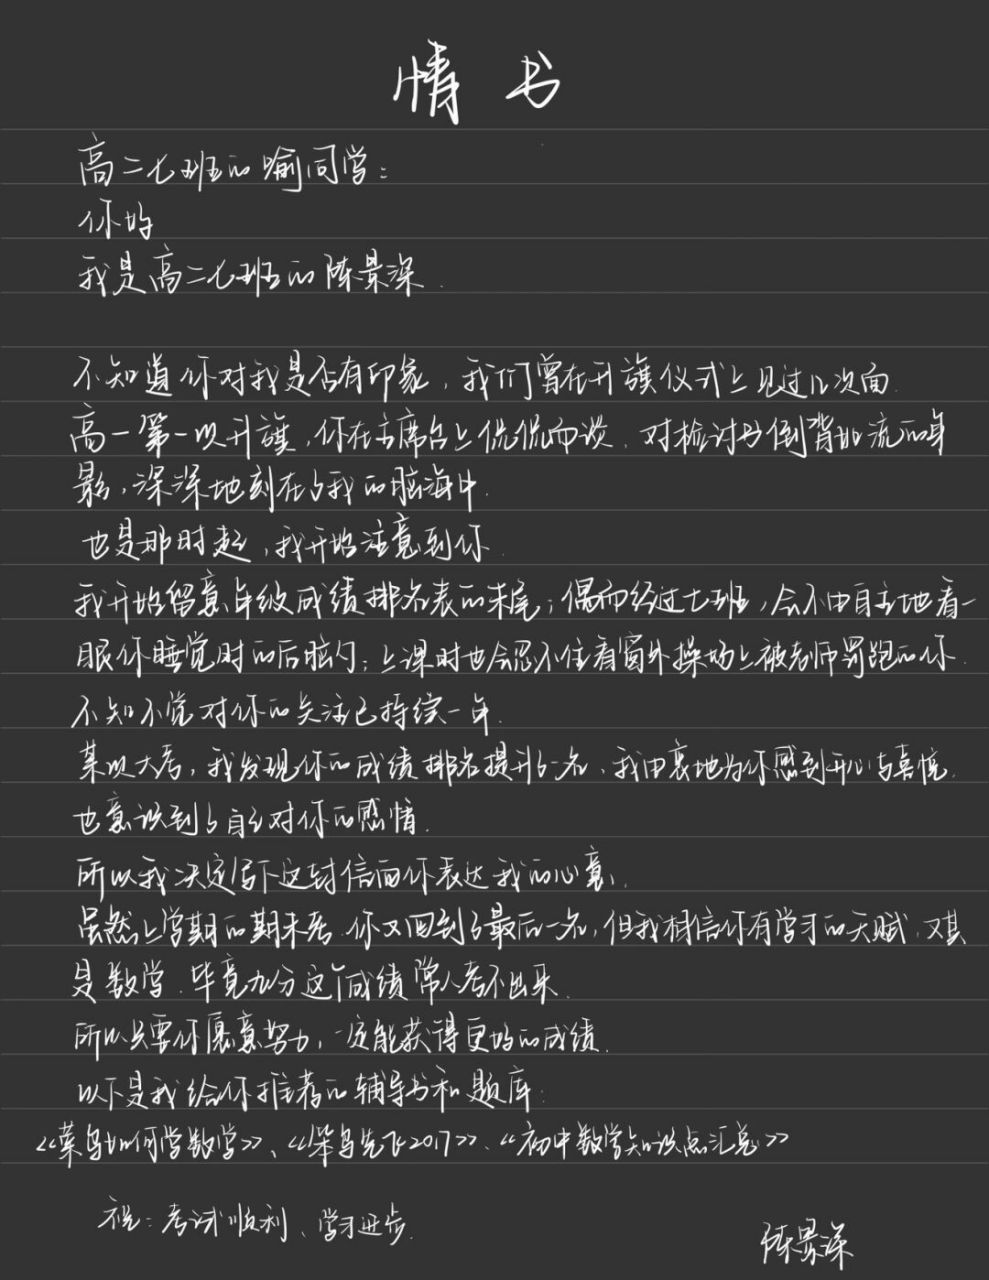 情书
高二七班的喻同学：
你好
我是高二七班的陈景深.
不知道你对我是否有印象，我们曾在升旗仪式上见过几次面.
高一第一次升旗，你在主席台上侃侃而谈、对检讨书倒背如流的身
影，深深地刻在了我的脑海中.
也是那时起，我开始注意到你.
我开始留意年级成绩排名表的末尾；偶而经过七班，会不由自主地看一
眼你睡觉时的后脑勺；上课时也会忍不住看窗外操场上被老师罚跑的你.
不知不觉对你的关注已持续一年.
某次大考，我发现你的成绩排名提升了一名、我由衷地为你感到开心与喜悦.
也意识到了自己对你的感情.
所以我决定写下这封信向你表达我的心意.
虽然上学期的期末考、你又回到了最后一名，但我相信你有学习的天赋，尤其
是数学.毕竟九分这个成绩常人考不出来.
所以只要你愿意努力，一定能获得更好的成绩.
以下是我给你推荐的辅导书和题库：
《菜鸟如何学数学》、《笨鸟先飞2017》、《初中数学知识点汇总》
祝：考试顺利、学习进步.
陈景深